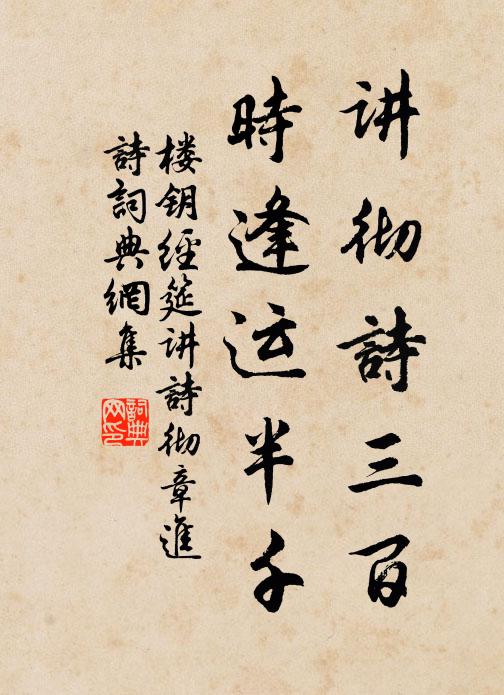 讲彻詩三百
時逢运半千
楼钥經筵讲詩彻章進
詩詞典網集
詞典网印